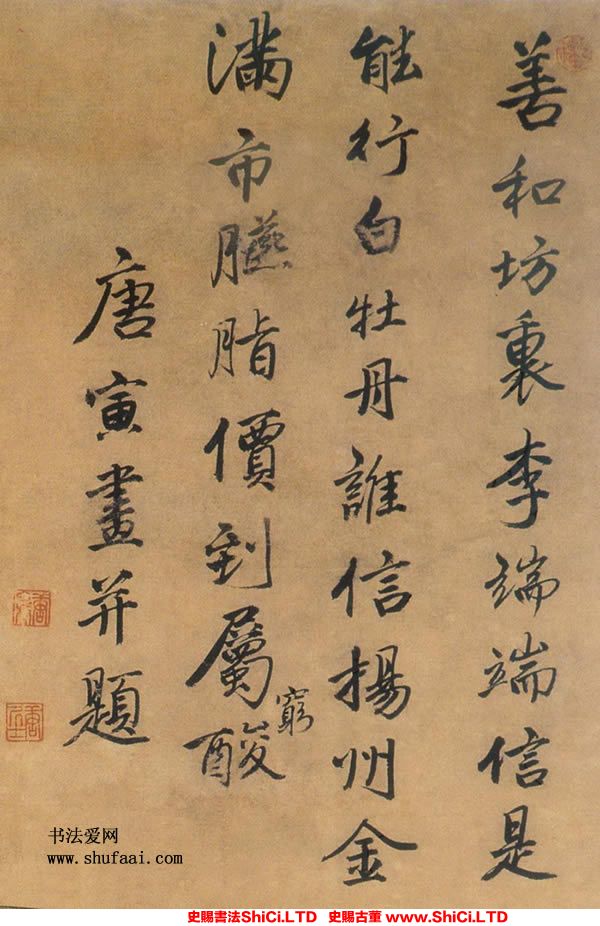 善和坊裏李端端信是
能行白牡丹誰信揚州金
滿市臙脂價到屬酸
窮
唐寅畫并題
书法爱网
www.shufaai.com
史賜書法ShiCi.LTD 史賜古董 www.ShiCi.LTD